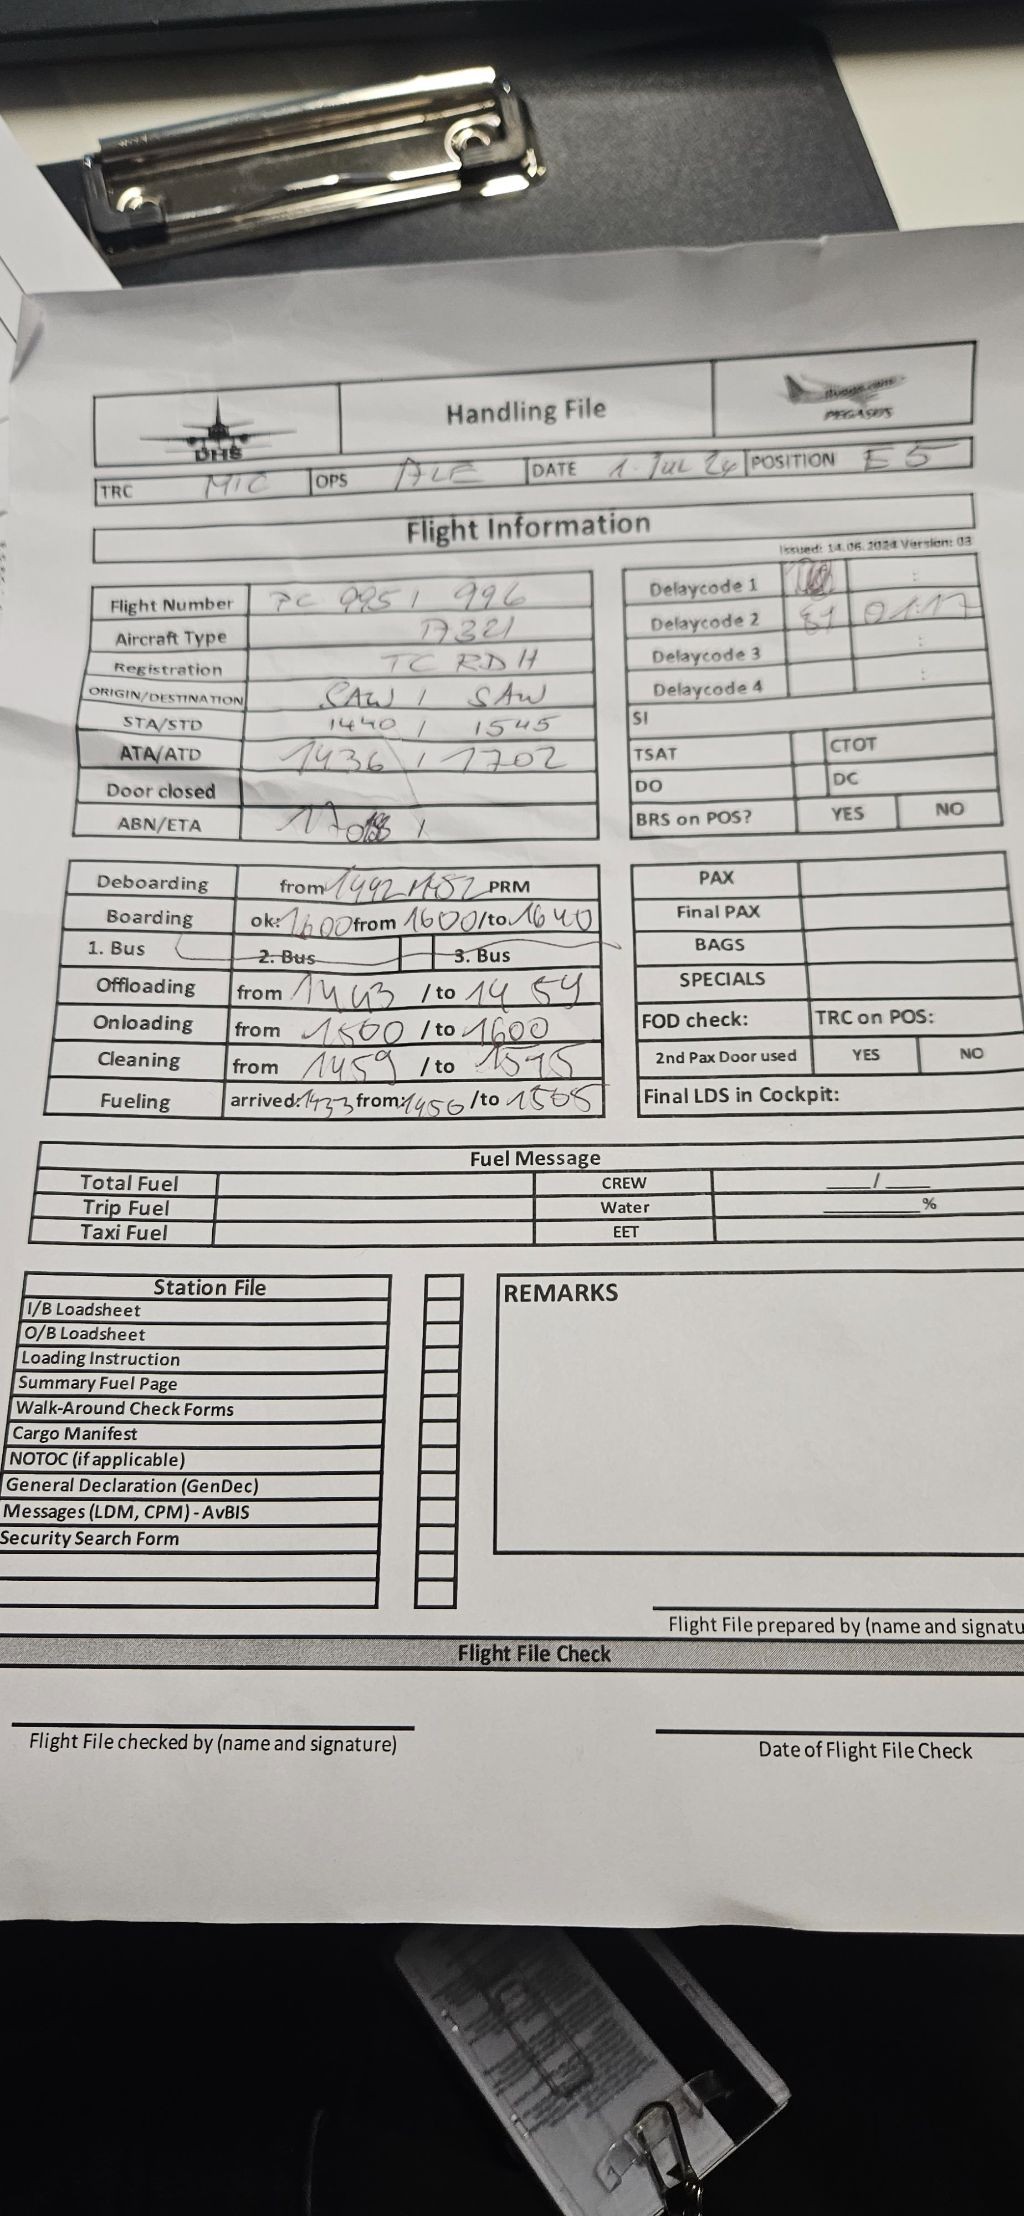 Handling File
DHS
PEGASUS
TRC MIC OPS ALE DATE 1. JUL 24 POSITION E5
Flight Information
Issued: 14.06.2024 Version: 03
Flight Number PC 995 / 996
Aircraft Type A321
Registration TC RDH
ORIGIN/DESTINATION SAW / SAW
STA/STD 1440 / 1545
ATA/ATD 1436 / 1702
Door closed
ABN/ETA /
Delaycode 1 :
Delaycode 2 81 01:17
Delaycode 3 :
Delaycode 4 :
SI
TSAT CTOT
DO DC
BRS on POS? YES NO
Deboarding from 1442 1452 PRM
Boarding ok: 1600 from 1600/to 1640
1. Bus 2. Bus 3. Bus
Offloading from 1443 /to 14 59
Onloading from 1500 /to 1600
Cleaning from 1459 /to 1515
Fueling arrived: 1433 from: 1456 /to
PAX
Final PAX
BAGS
SPECIALS
FOD check: TRC on POS:
2nd Pax Door used YES NO
Final LDS in Cockpit:
Fuel Message
Total Fuel CREW ___/___
Trip Fuel Water ______%
Taxi Fuel EET
Station File
I/B Loadsheet
O/B Loadsheet
Loading Instruction
Summary Fuel Page
Walk-Around Check Forms
Cargo Manifest
NOTOC (if applicable)
General Declaration (GenDec)
Messages (LDM, CPM) - AvBIS
Security Search Form
REMARKS
Flight File prepared by (name and signatu
Flight File Check
Flight File checked by (name and signature)
Date of Flight File Check